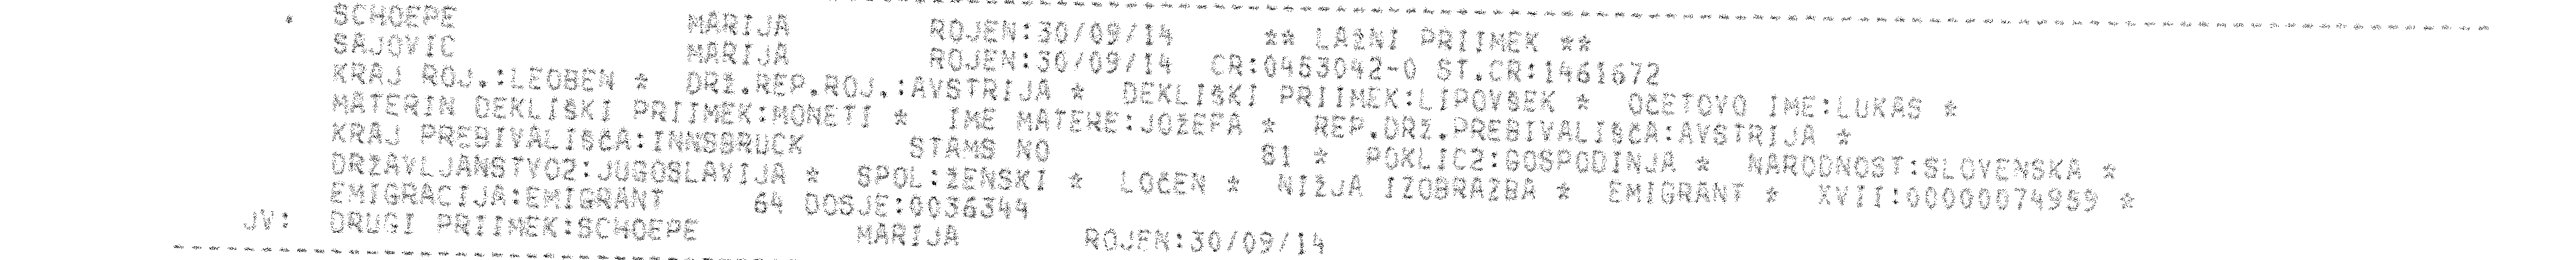 . SCHOEPE MARIJA ROJEN:30/09/14 ** LAŽNI PRIIMEK **
SAJOVIC MARIJA ROJEN:30/09/14 CR:0453042-0 ST.CR:1461672
KRAJ ROJ.:LEOBEN * DRŽ.REP.ROJ.:AVSTRIJA * DEKLIŠKI PRIIMEK:LIPOVŠEK * OČETOVO IME:LUKAS *
MATERIN DEKLIŠKI PRIIMEK:MONETI * IME MATERE:JOŽEFA * REP.DRŽ.PREBIVALIŠČA:AVSTRIJA *
KRAJ PREBIVALIŠČA:INNSBRUCK STAMS NO 81 * POKLIC2:GOSPODINJA * NARODNOST:SLOVENSKA *
DRŽAVLJANSTVO2:JUGOSLAVIJA * SPOL:ŽENSKI * LOČEN * NIŽJA IZOBRAZBA * EMIGRANT * XVII:00000074959 *
EMIGRACIJA:EMIGRANT 64 DOSJE:0036344
JV: DRUGI PRIIMEK:SCHOEPE MARIJA ROJEN:30/09/14